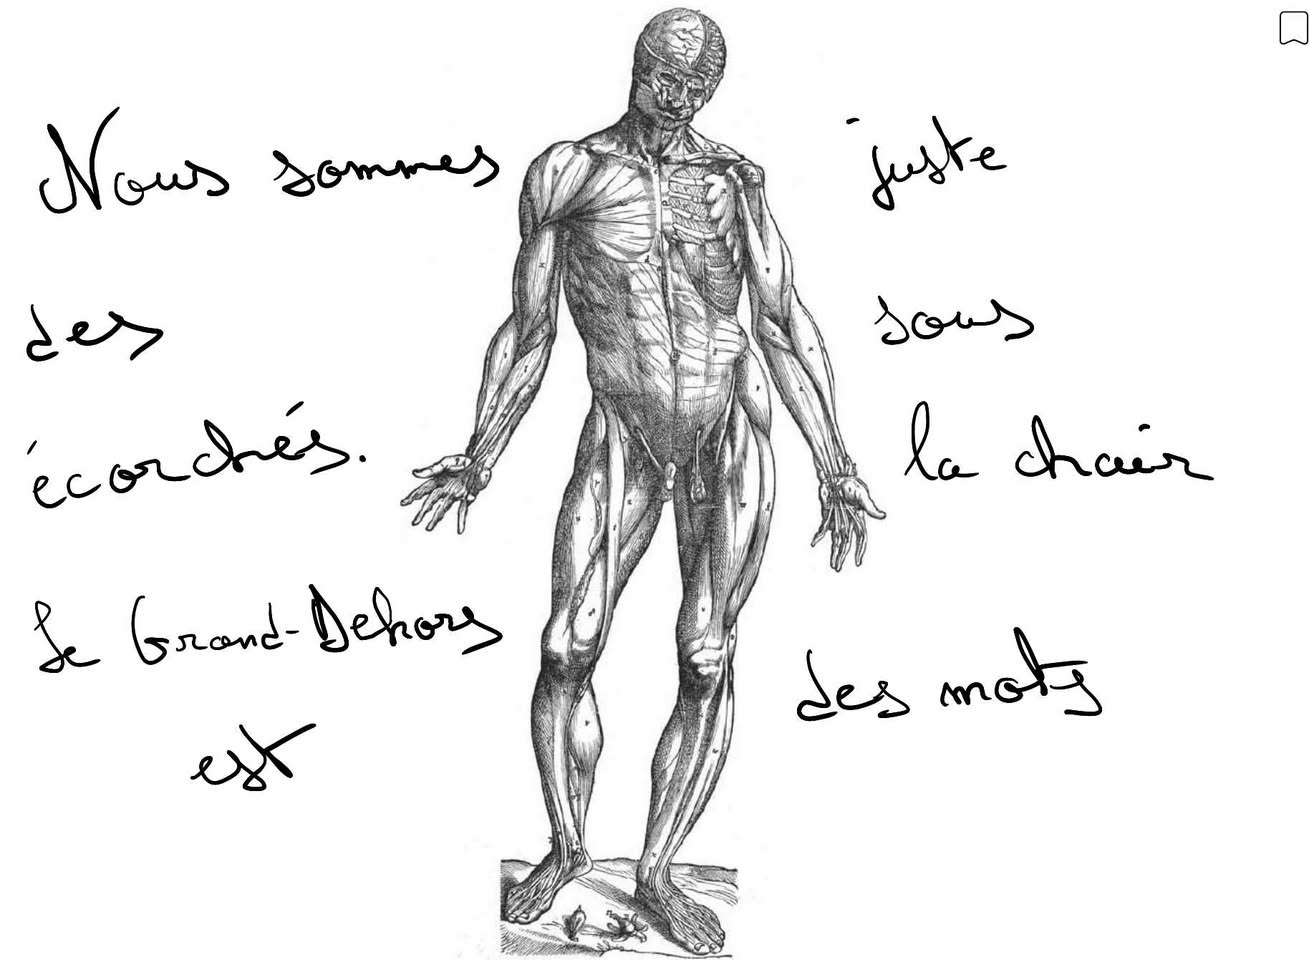 Nous sommes
des
écorchés.
Le Grand-Dehors
est
juste
sous
la chair
des mots